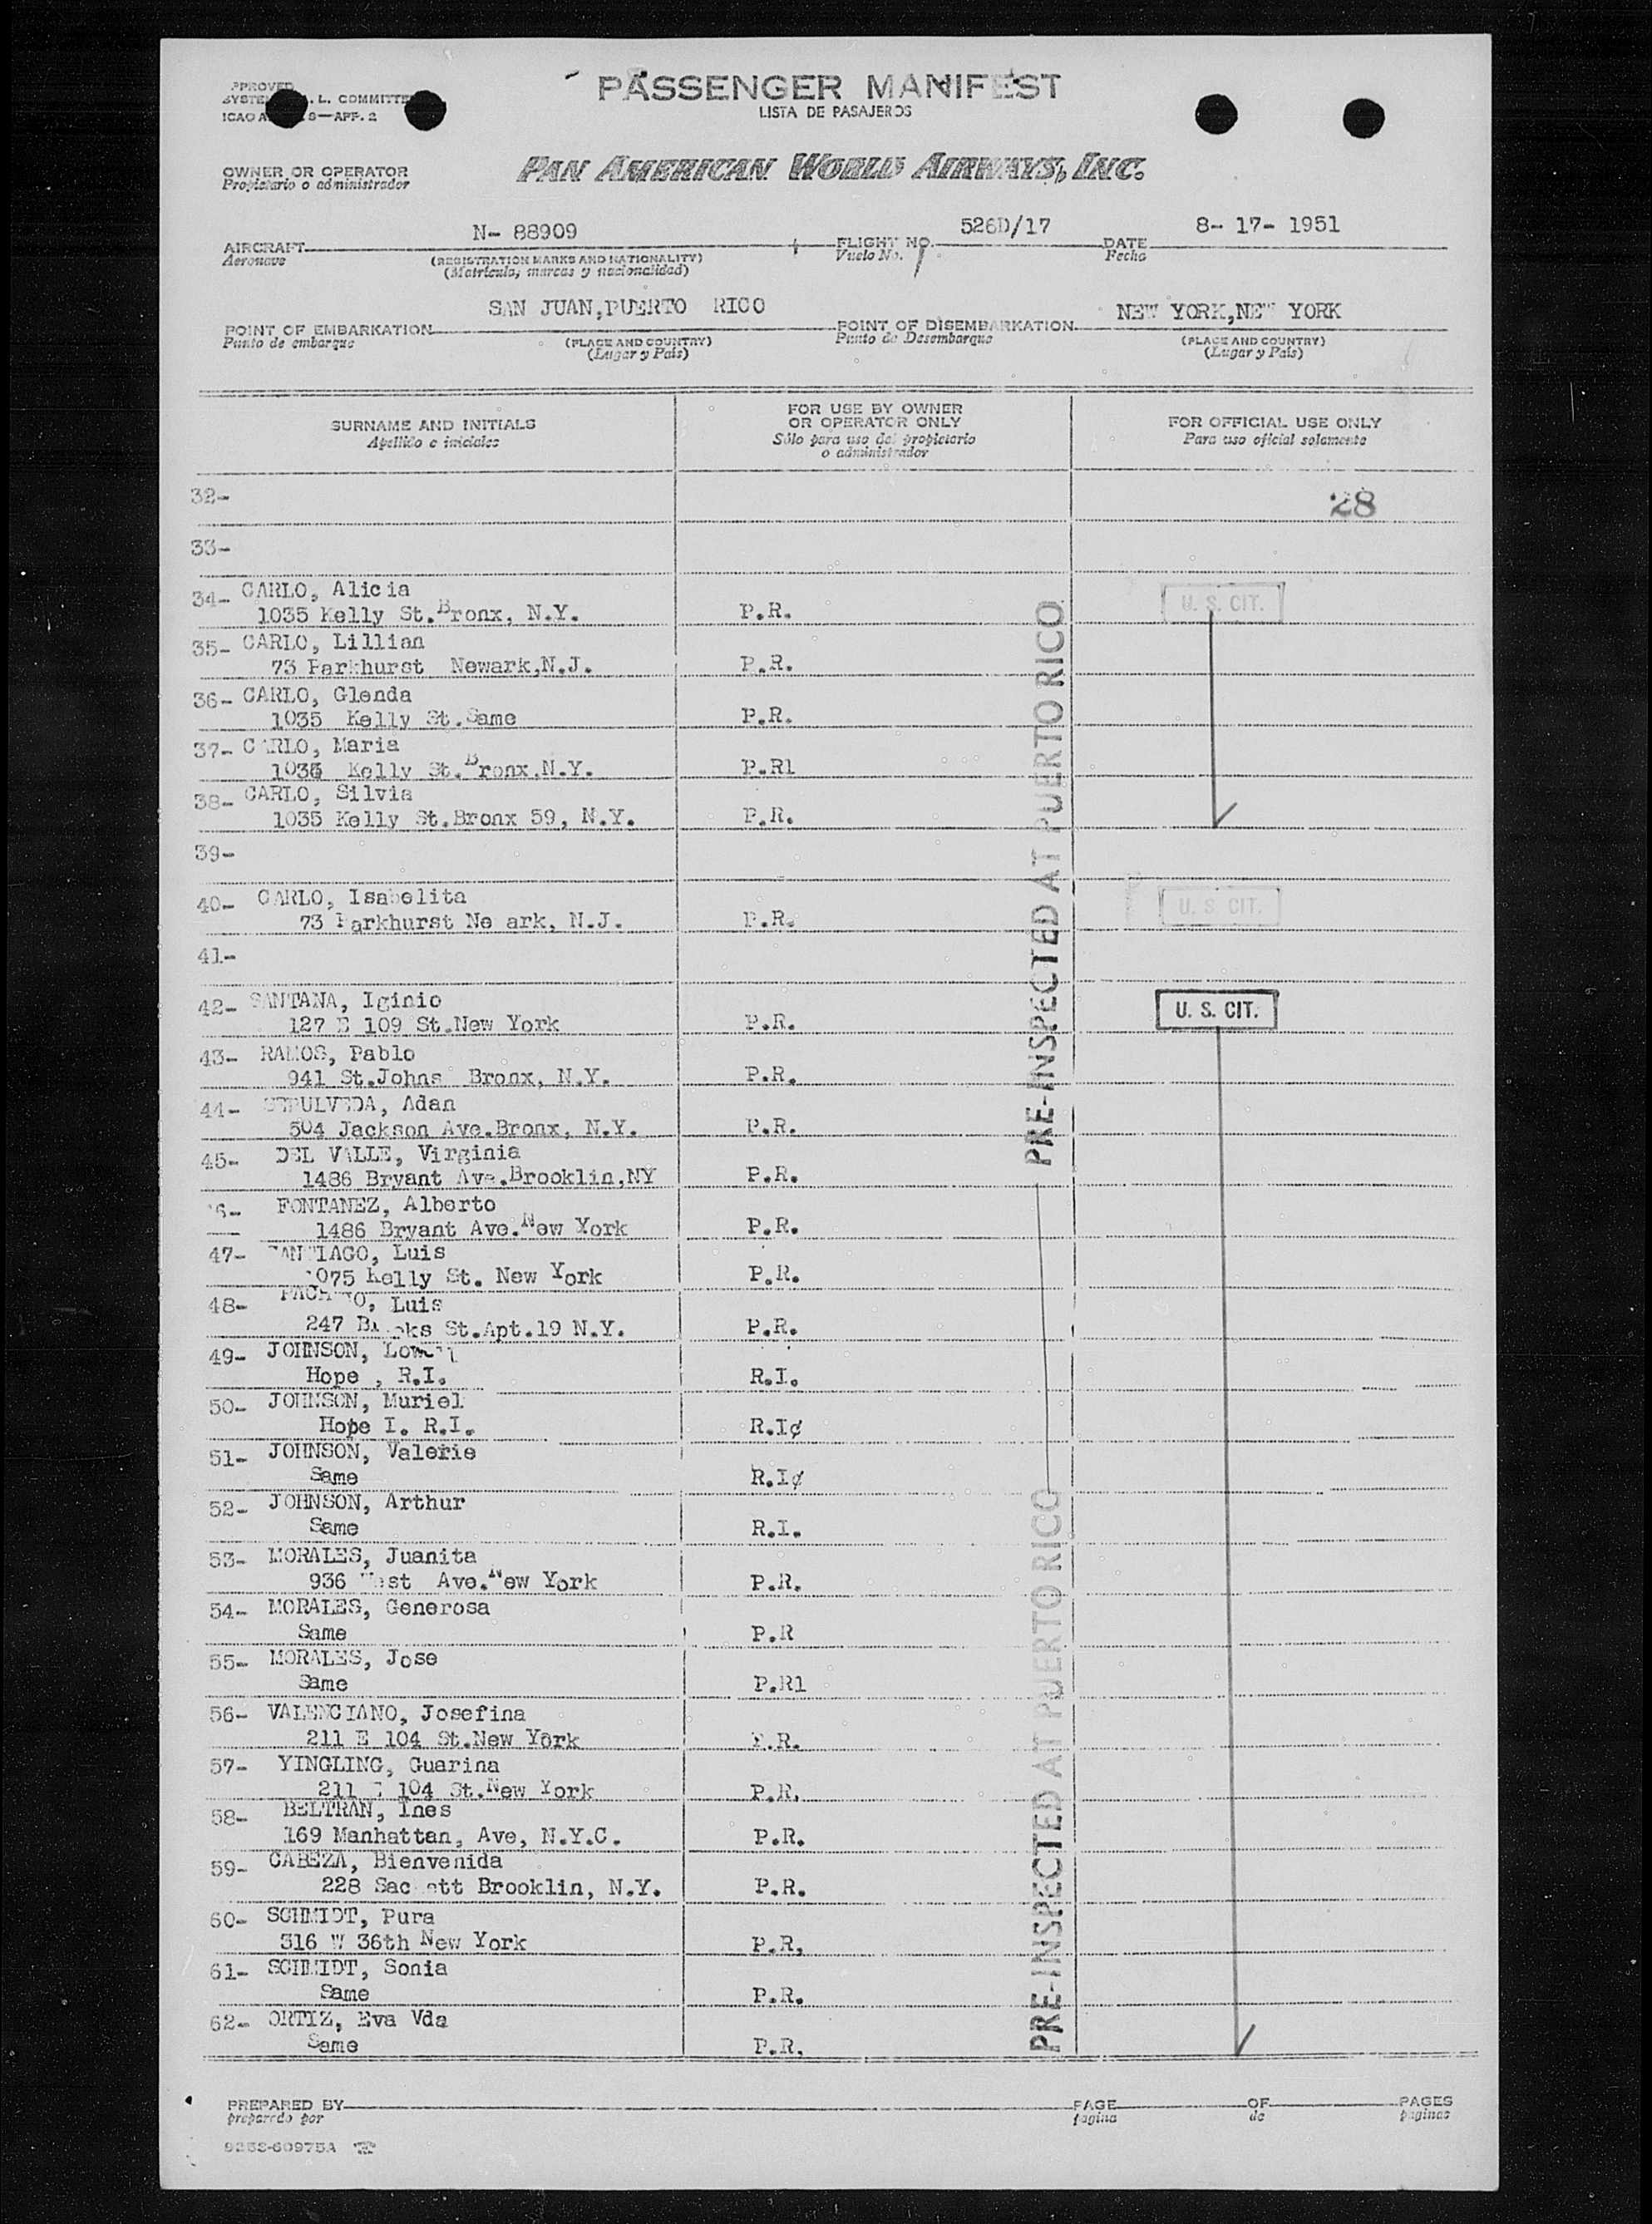 PASSENGER MANIFEST
LISTA DE PASAJEROS
APPROVED
L. COMMITTEE
ICAO 9—APP. 2
OWNER OR OPERATOR
Propietario o administrador
PAN AMERICAN WORLD AIRWAYS, INC.
AIRCRAFT N- 88909 FLIGHT NO. 526D/17 DATE 8- 17- 1951
Aeronave (REGISTRATION MARKS AND NATIONALITY) Vuelo No. Fecha
(Matrícula, marcas y nacionalidad)
POINT OF EMBARKATION SAN JUAN, PUERTO RICO POINT OF DISEMBARKATION NEW YORK, NEW YORK
Punto de embarque (PLACE AND COUNTRY) Punto de Desembarque (PLACE AND COUNTRY)
(Lugar y País) (Lugar y País)
SURNAME AND INITIALS FOR USE BY OWNER OR OPERATOR ONLY FOR OFFICIAL USE ONLY
Apellido e iniciales Sólo para uso del propietario o administrador Para uso oficial solamente
32- 28
33-
34- CARLO, Alicia U. S. CIT.
1035 Kelly St. Bronx, N.Y. P.R.
35- CARLO, Lillian
73 Parkhurst Newark,N.J. P.R.
36- CARLO, Glenda
1035 Kelly St.Same P.R.
37- CARLO, Maria
1035 Kelly St. Bronx,N.Y. P.R1
38- CARLO, Silvia
1035 Kelly St.Bronx 59, N.Y. P.R.
39-
40- CARLO, Isabelita U. S. CIT.
73 Parkhurst Ne ark, N.J. P.R.
41-
42- SANTANA, Iginio U. S. CIT.
127 E 109 St.New York P.R.
43- RAMOS, Pablo
941 St.Johns Bronx, N.Y. P.R.
44- SEPULVEDA, Adan
504 Jackson Ave.Bronx, N.Y. P.R.
45- DEL VALLE, Virginia
1486 Bryant Ave.Brooklin,NY P.R.
6- FONTANEZ, Alberto
1486 Bryant Ave.New York P.R.
47- SANTIAGO, Luis
1075 Kelly St. New York P.R.
48- Luis
247 St.Apt.19 N.Y. P.R.
49- JOHNSON, Lowell
Hope , R.I. R.I.
50- JOHNSON, Muriel
Hope I. R.I. R.I¢
51- JOHNSON, Valerie
Same R.I¢
52- JOHNSON, Arthur
Same R.I.
53- MORALES, Juanita
936 West Ave.New York P.R.
54- MORALES, Generosa
Same P.R
55- MORALES, Jose
Same P.R1
56- VALENCIANO, Josefina
211 E 104 St.New York P.R.
57- YINGLING, Guarina
211 E 104 St.New York P.R.
58- BELTRAN, Ines
169 Manhattan, Ave, N.Y.C. P.R.
59- CABEZA, Bienvenida
228 Sac ett Brooklin, N.Y. P.R.
60- SCHMIDT, Pura
316 W 36th New York P.R.
61- SCHMIDT, Sonia
Same P.R.
62- ORTIZ, Eva Vda
Same P.R.
PRE-INSPECTED AT PUERTO RICO
PRE-INSPECTED AT PUERTO RICO
PREPARED BY PAGE OF PAGES
preparado por página de páginas
9253-60975A